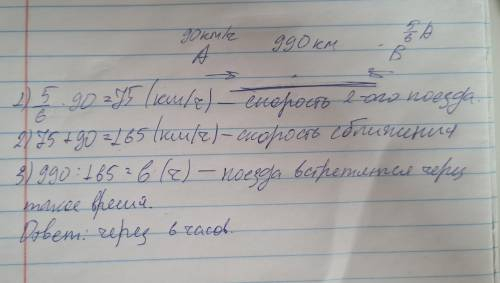 90км/ч 990 км 5/6 A
A B
1) 5/6 · 90 = 75 (км/ч) – скорость 2-ого поезда.
2) 75 + 90 = 165 (км/ч) – скорость сближения
3) 990 : 165 = 6 (ч) – поезда встретятся через
такое время.
Ответ: через 6 часов.